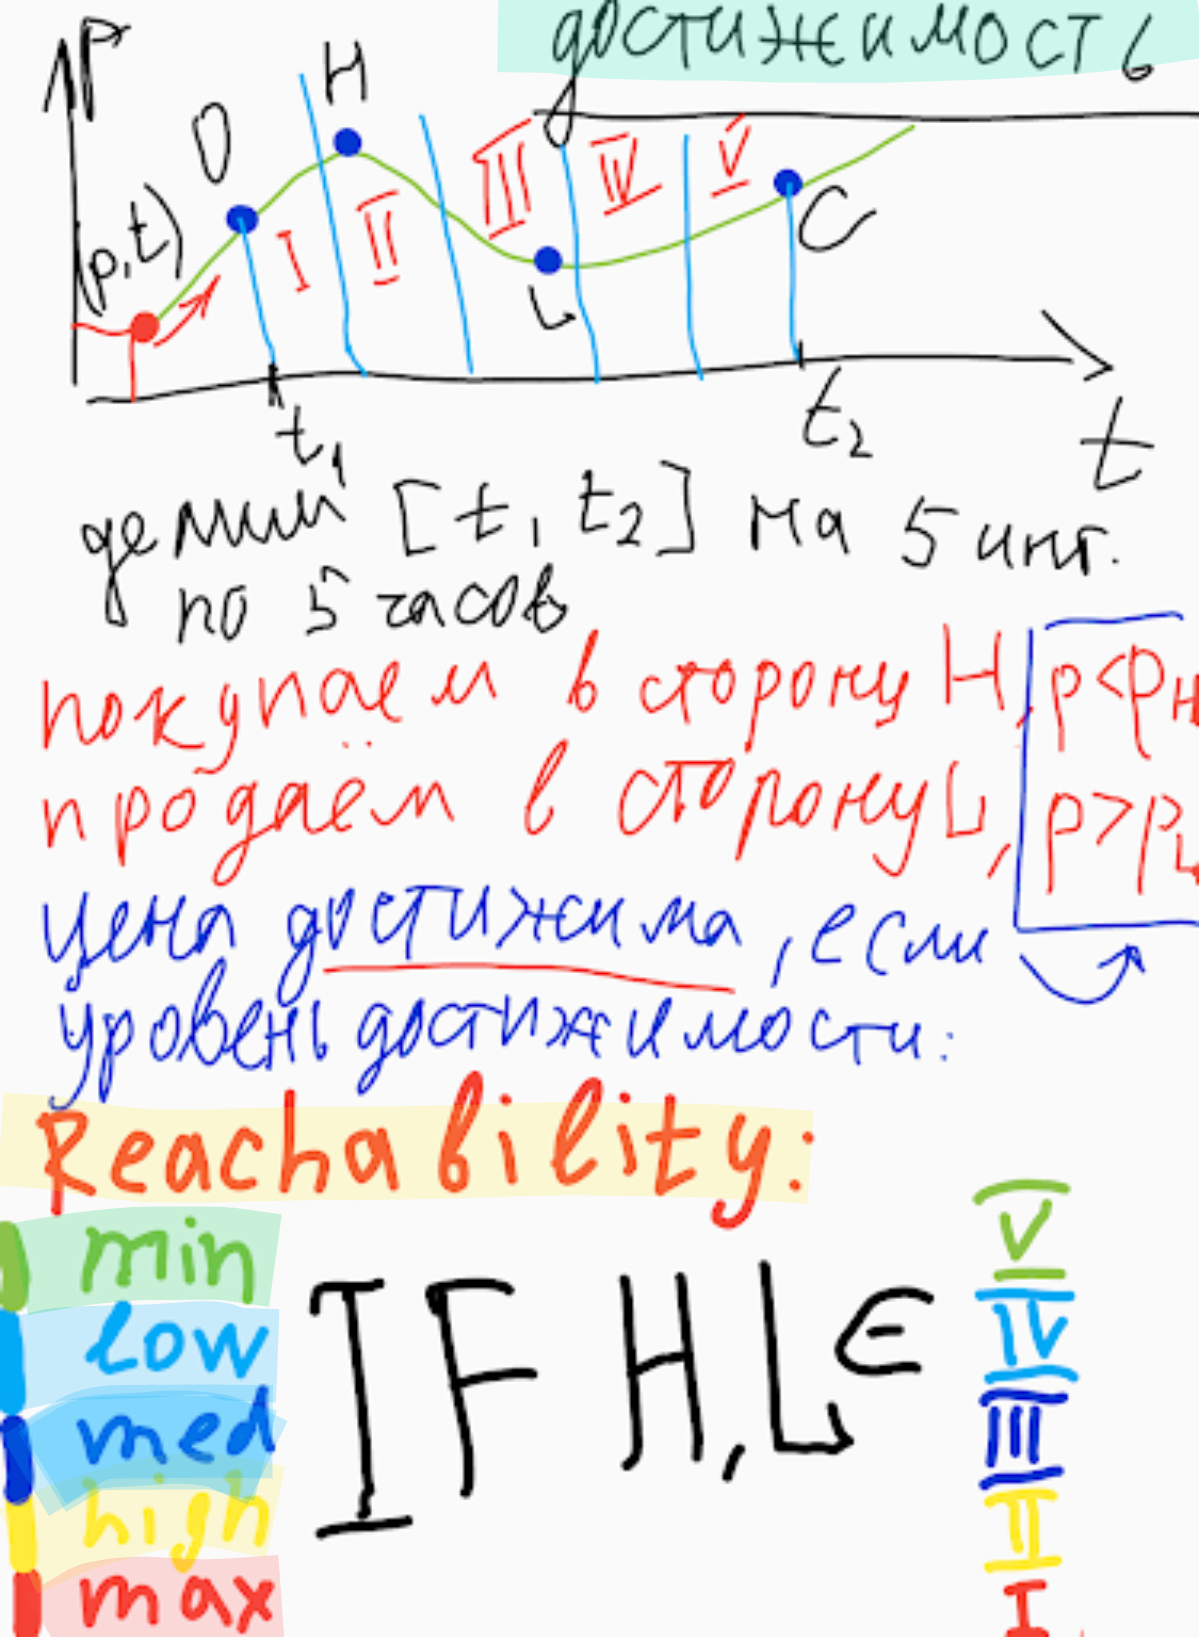 достижимость
P
H
O
(p,t)
I II III IV V
L
C
t₁
t₂
t
делим [t₁ t₂] на 5 инт.
по 5 часов
покупаем в сторону H, p<pH
продаём в сторону L, p>pL
цена достижима, если
уровень достижимости:
Reachability:
min V
low IV
IF H,L ∈
med III
high II
max I